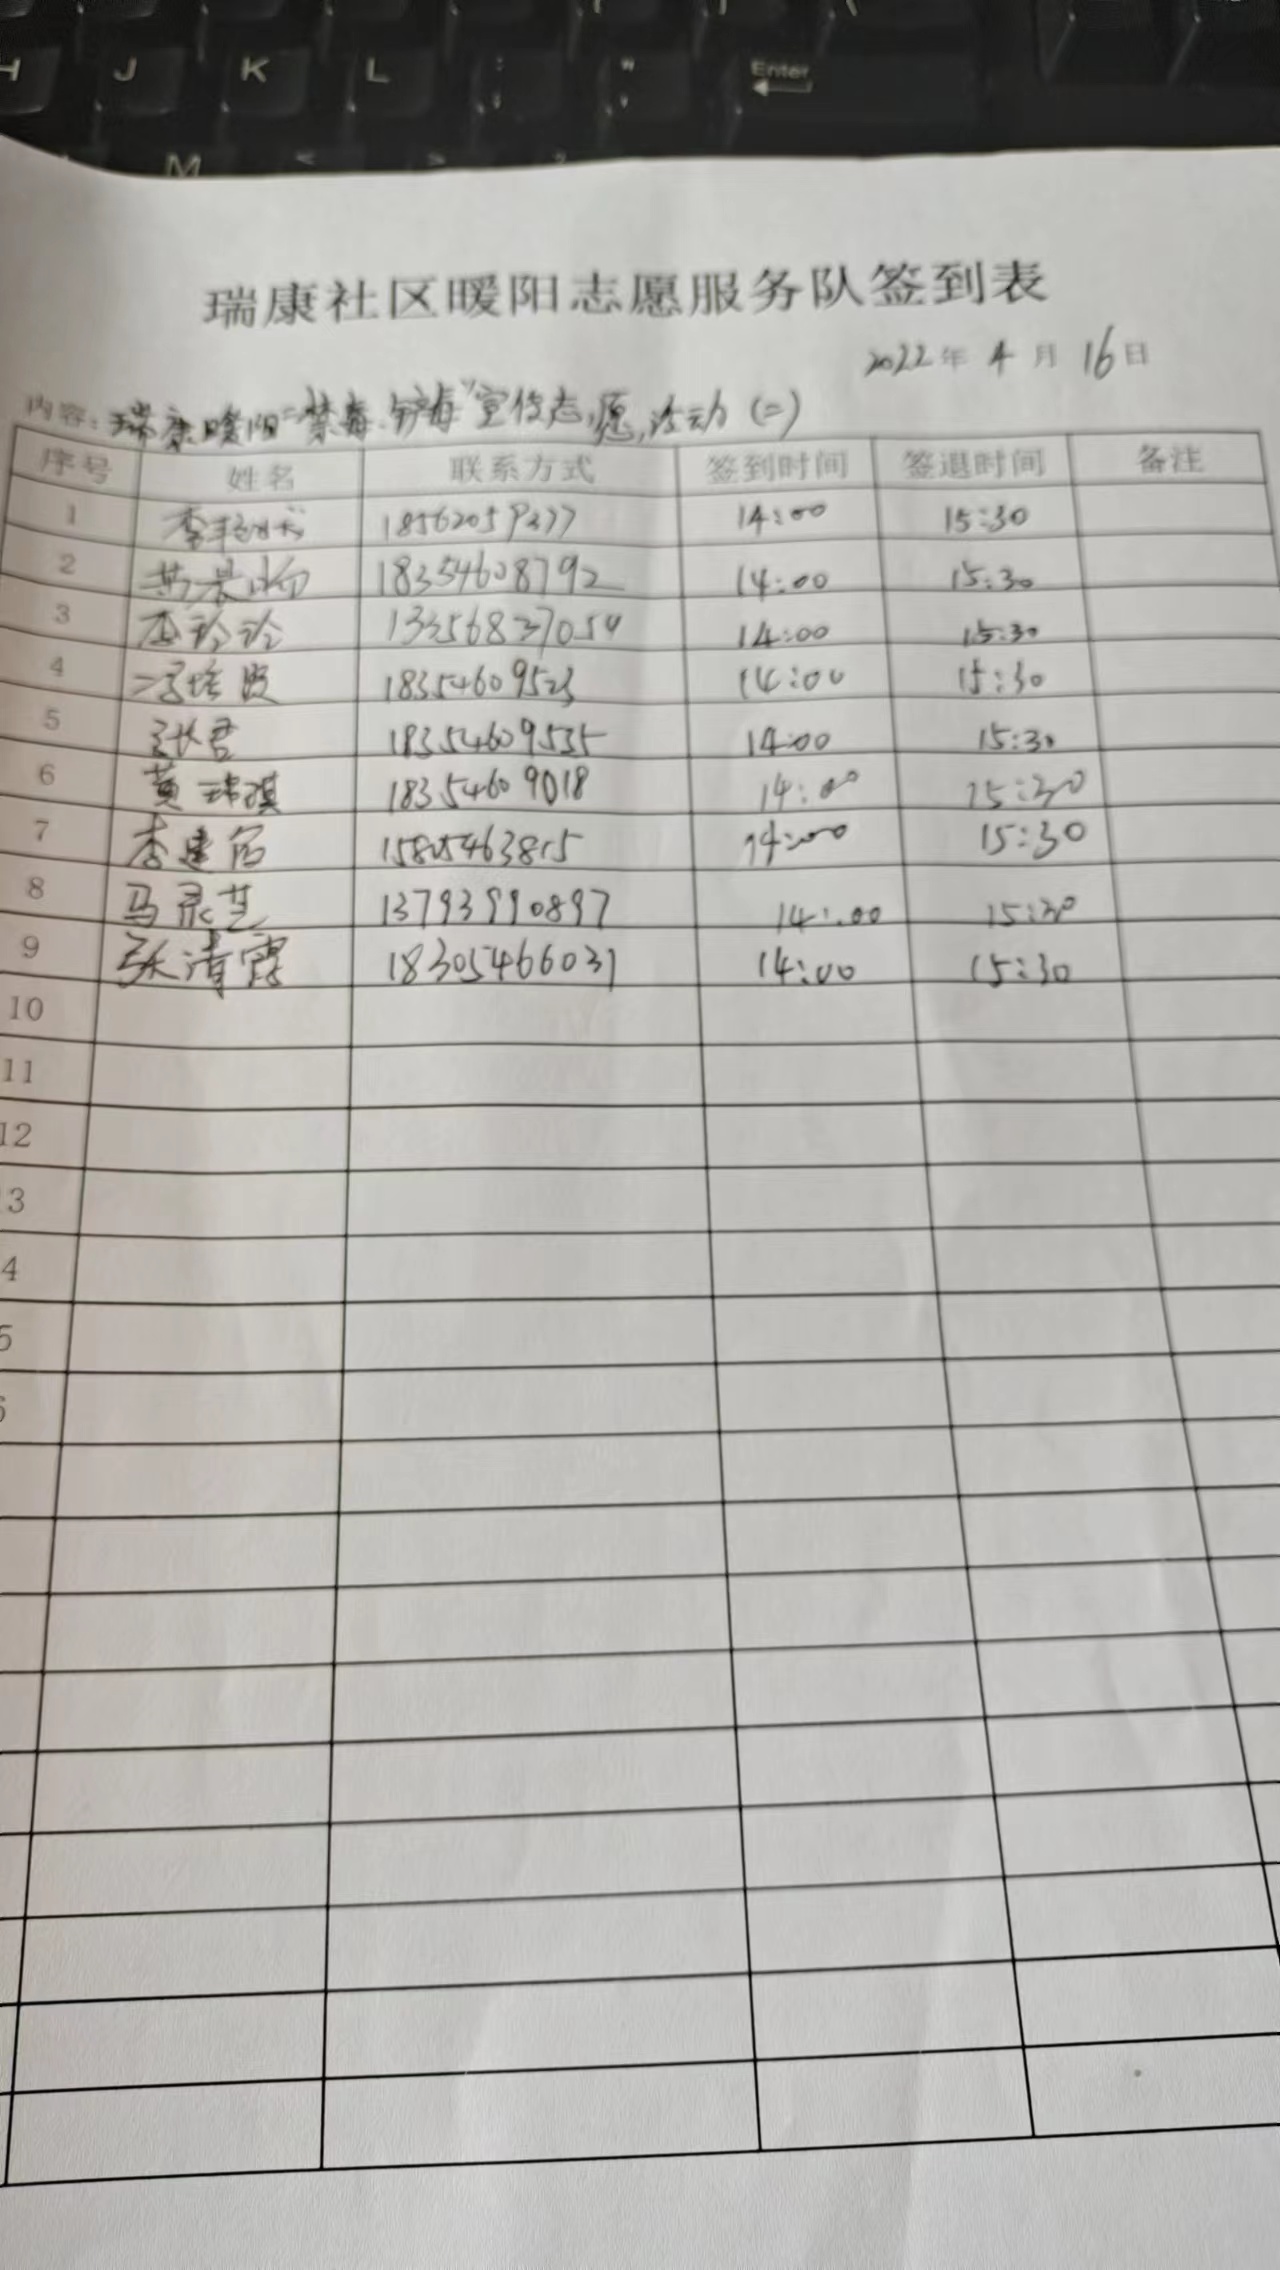 H J K L : ; " ' Enter
M < > ?
瑞康社区暖阳志愿服务队签到表
2022年 4 月 16日
内容:瑞康暖阳"禁毒、宣传志愿活动(二)
序号 姓名 联系方式 签到时间 签退时间 备注
1 李 14:00 15:30
2 18354608792 14:00 15:30
3 李玲玲 14:00 15:30
4 18354609523 14:00 15:30
5 张君 18354609535 14:00 15:30
6 黄瑞琪 18354609018 14:00 15:30
7 李建 14:00 15:30
8 马灵芝 13793990897 14:00 15:30
9 张清霞 18305466031 14:00 15:30
10
11
12
3
4
5
6